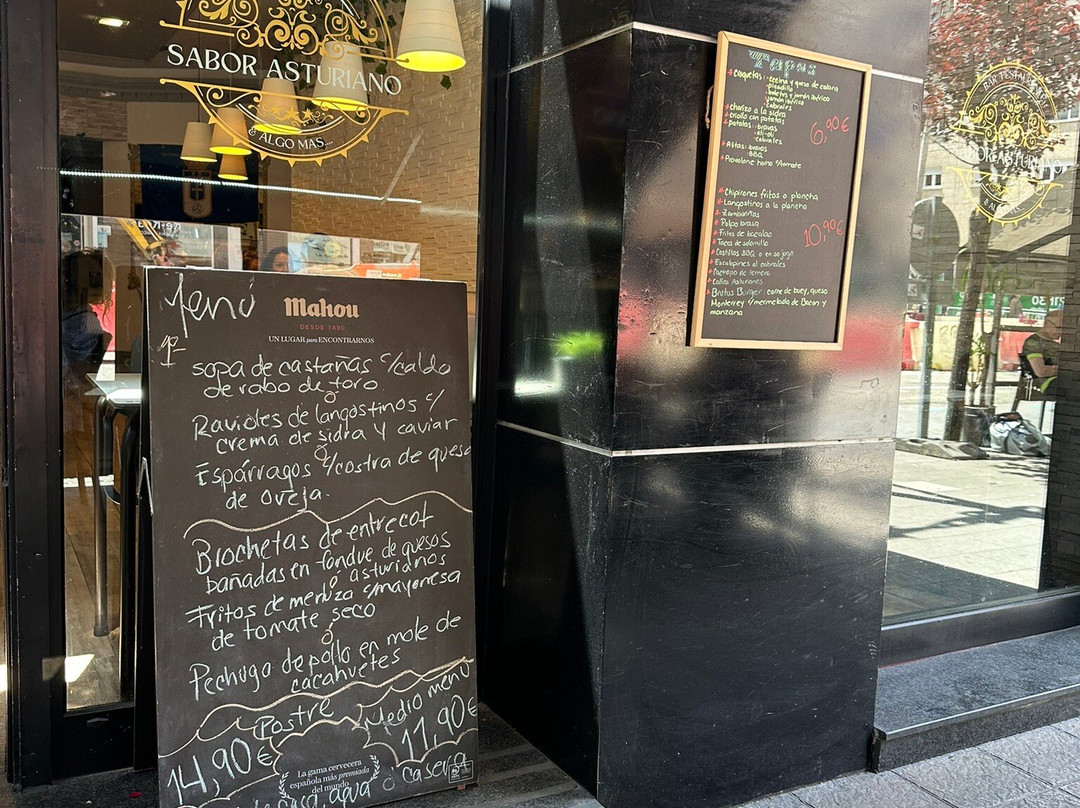 SABOR ASTURIANO
& ALGO MAS....
Menú
Mahou
DESDE 1890
UN LUGAR para ENCONTRARNOS
sopa de castañas c/caldo
de rabo de toro.
ó
Ravioles de langostinos c/
crema de sidra y caviar
ó
Espárragos c/costra de queso
de oveja.
Brochetas de entrecot
bañadas en fondue de quesos
ó asturianos
Fritos de merluza c/mayonesa
de tomate seco
ó
Pechuga de pollo en mole de
cacahuetes
Postre
Medio menú
14,90€
11,90€
La gama cervecera
española más premiada
del mundo
agua ó casera
Tapas
* Croquetas: cecina y queso de cabra
picadillo
boletus y jamón ibérico
jamón ibérico
cabrales
* chorizo a la sidra
* criollo con patatas
* patatas: bravas
ali-oli
cabrales
6,90€
* Alitas: bravas
BBQ
* Provolone horno s/tomate
* Chipirones fritos o plancha
* Langostinos a la plancha
* Zamburiñas
* Pulpo brasa
* Fritos de bacalao
* Tacos de solomillo
10,90€
* Costillas BBQ o en su jugo
* Escalopines al cabrales
* Cachopo de ternera
* Callos Asturianos
* Brutus Burger: carne de buey, queso
Monterrey s/mermelada de Bacon y
manzana
BAR RESTAURANTE
SABOR ASTURIANO
& ALGO MAS